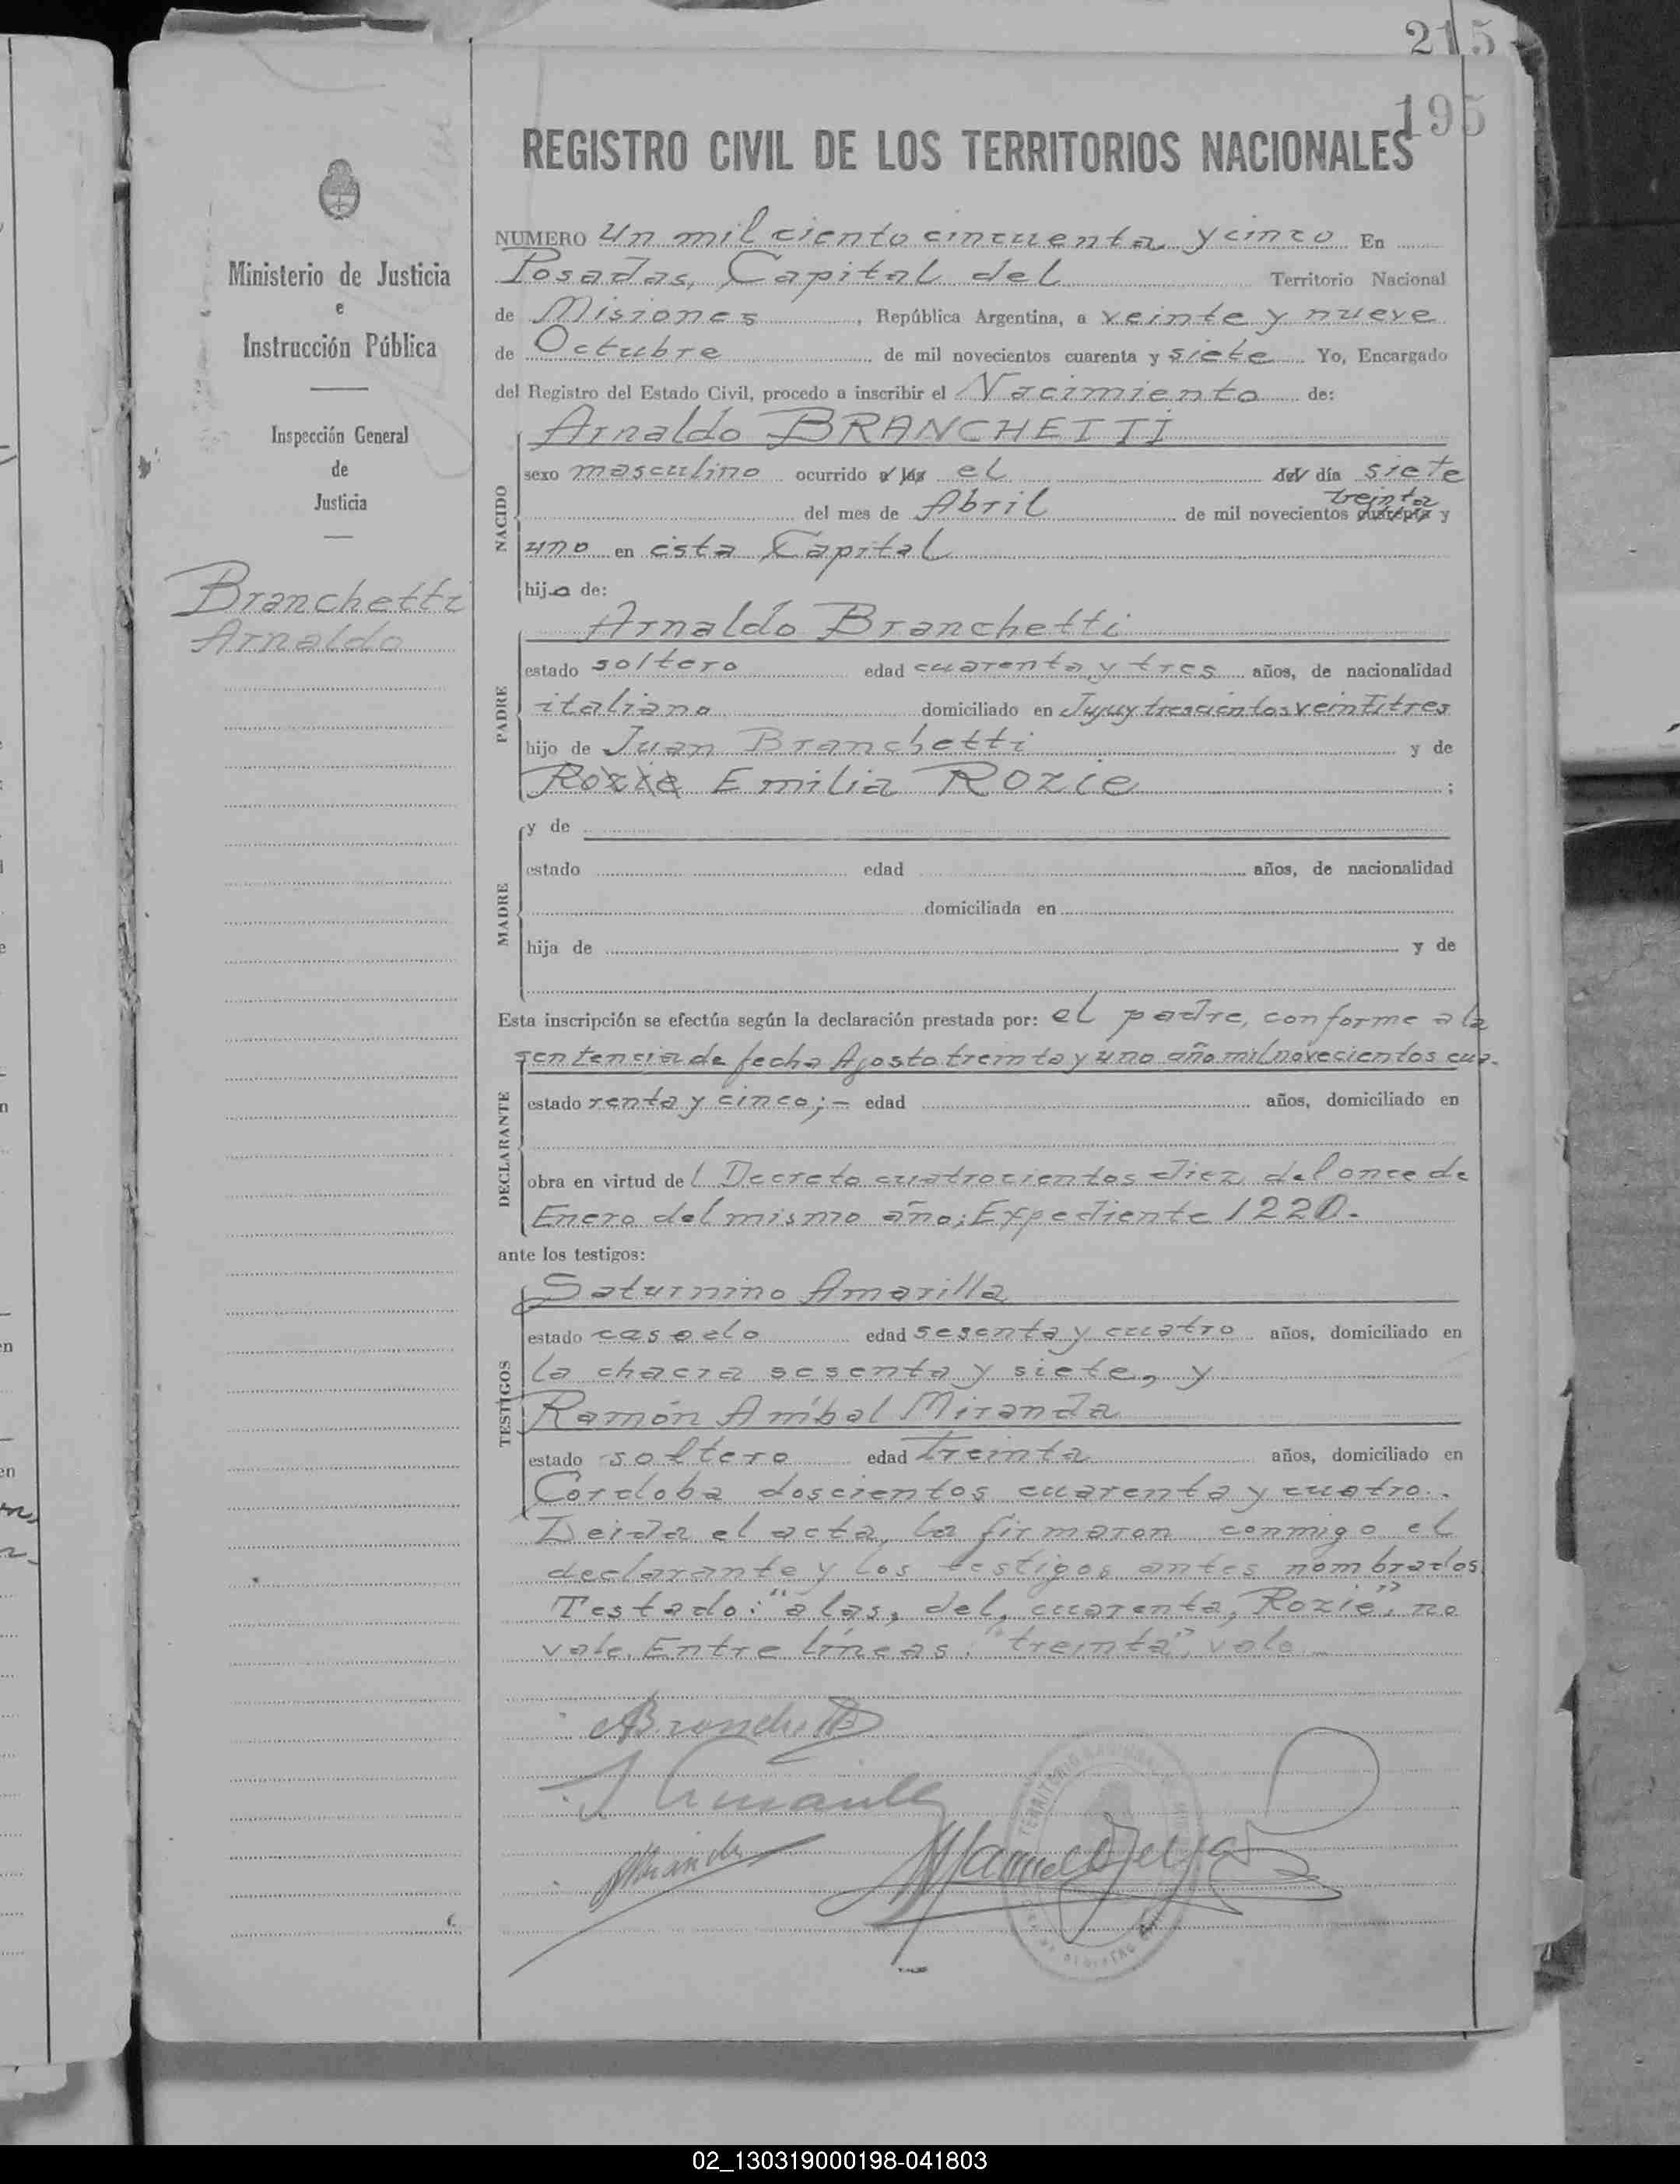 215
195
REGISTRO CIVIL DE LOS TERRITORIOS NACIONALES
Ministerio de Justicia
e
Instrucción Pública
Inspección General
de
Justicia
Branchetti
Arnaldo
NUMERO un mil ciento cincuenta y cinco En
Posadas, Capital del Territorio Nacional
de Misiones, República Argentina, a veinte y nueve
de Octubre de mil novecientos cuarenta y siete Yo, Encargado
del Registro del Estado Civil, procedo a inscribir el Nacimiento de:
NACIDO
Arnaldo BRANCHETTI
sexo masculino ocurrido a las el del día siete
treinta
del mes de Abril de mil novecientos cuarenta y
uno en esta Capital
hijo de:
PADRE
Arnaldo Branchetti
estado soltero edad cuarenta y tres años, de nacionalidad
italiana domiciliado en Jujuy trescientos veintitres
hijo de Juan Branchetti y de
Rozie Emilia Rozie ;
MADRE
y de
estado edad años, de nacionalidad
domiciliada en
hija de y de
Esta inscripción se efectúa según la declaración prestada por: el padre, conforme a la
DECLARANTE
sentencia de fecha Agosto treinta y uno año mil novecientos cua-
estado renta y cinco;- edad años, domiciliado en
obra en virtud del Decreto cuatrocientos diez del once de
Enero del mismo año; Expediente 1220.
ante los testigos:
TESTIGOS
Saturnino Amarilla
estado casado edad sesenta y cuatro años, domiciliado en
la chacra sesenta y siete, y
Ramón Aníbal Miranda
estado soltero edad treinta años, domiciliado en
Córdoba doscientos cuarenta y cuatro.
Leida el acta, la firmaron conmigo el
declarante y los testigos antes nombrados
Testado: "a las, del, cuarenta, Rozie", no
vale. Entre líneas: "treinta", vale
ABranchetti
S Amarilla
Miranda
TERRITORIO
02_130319000198-041803